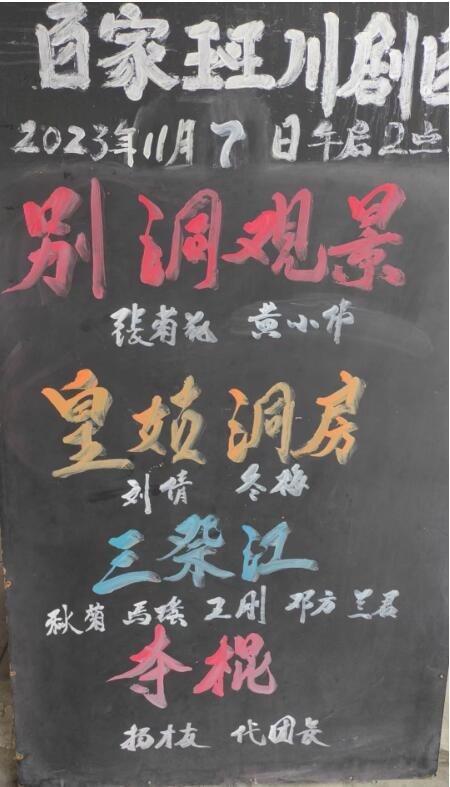 百家班川剧团
2023年11月7日午后2点
别洞观景
张菊花 黄小华
皇娘洞房
刘倩 冬梅
三祭江
秋菊 馬瑤 卫刚 邓方 兰君
夺棍
杨木友 代团长